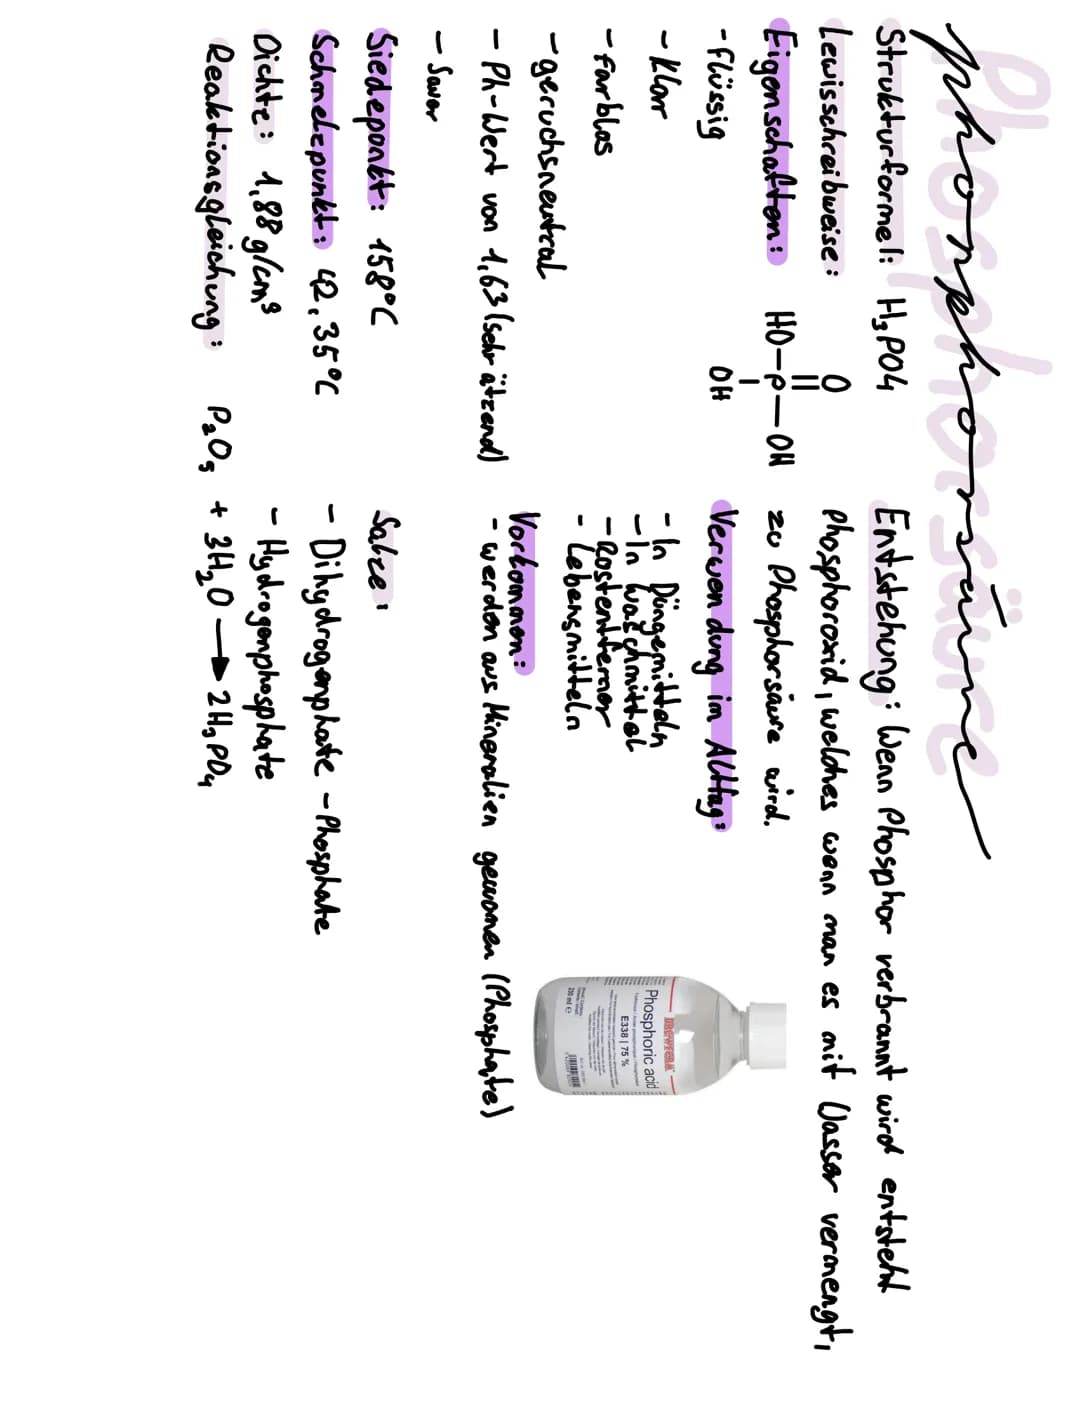 Phosphorsäure
Phosphorsäure
Strukturformel: H₃PO4
Lewisschreibweise:
O
HO-P-OH
OH
Eigenschaften:
-flüssig
-klar
-farblos
-geruchsneutral
- Ph-Wert von 1,63 (sehr ätzend)
- Sauer
Siedepunkt: 158°C
Schmelzpunkt: 42,35°C
Dichte: 1,88 g/cm³
Reaktionsgleichung: P₂O₅ + 3H₂O → 2H₃PO₄
Entstehung: Wenn Phosphor verbrannt wird entsteht
Phosphoroxid, welches wenn man es mit Wasser vermengt,
zu Phosphorsäure wird.
Verwendung im Alltag:
- In Düngemitteln
- In Waschmittel
- Rostentferner
- Lebensmitteln
Vorkommen:
- werden aus Mineralien gewonnen (Phosphate)
Salze:
- Dihydrogenphate - Phosphate
- Hydrogenphosphate
Phosphoric acid
E338 | 75 %
250 ml e